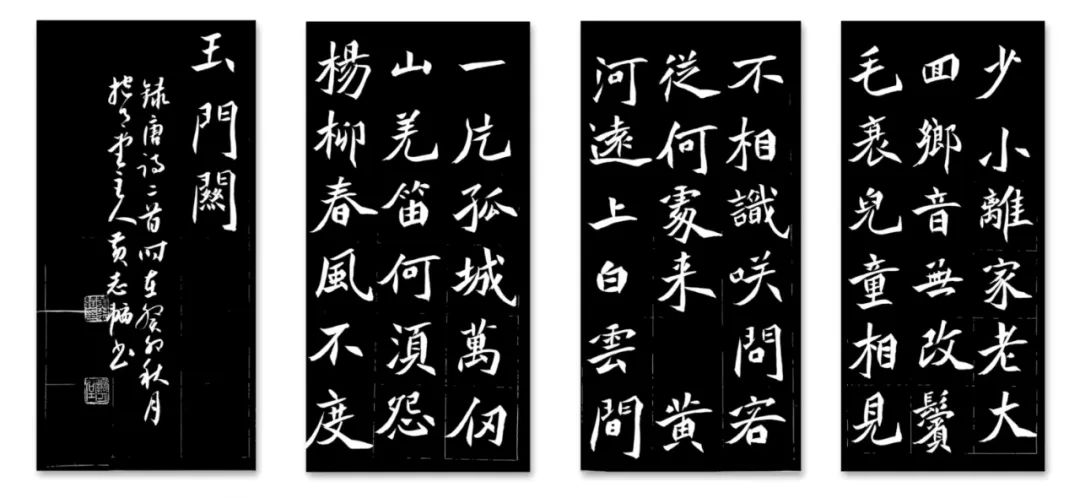 少小離家老大
囬鄉音無改鬢
毛衰兒童相見
不相識咲問客
從何處来 黄
河遠上白雲間
一片孤城萬仞
山羌笛何須怨
楊柳春風不度
玉門關
錄唐詩二首时在癸卯秋月
堂主人黄志书